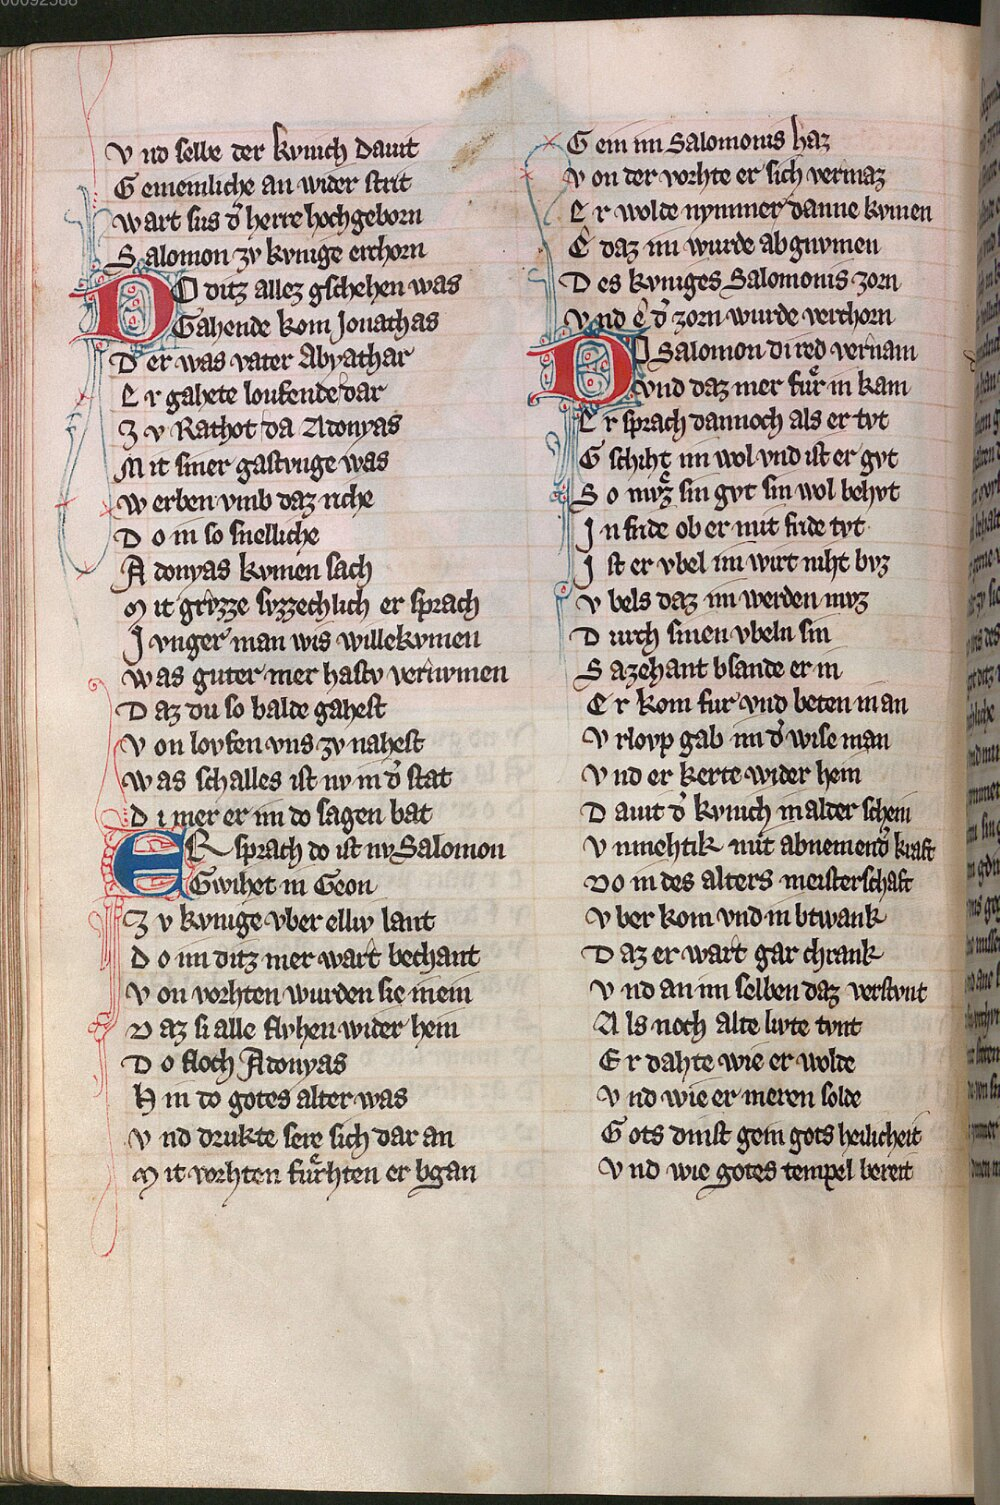 00092588
Vnd selbe der kvnich Dauit
Gemeinliche an wider strit
Wart sus d͛ herre hochgeborn
Salomon zv kvnige erchorn
DO ditz allez gschehen was
Gahende kom Jonathas
Der was vater Abyathar
Er gahete loufende dar
Zv Rathot da Adonyas
Mit siner gastvnge was
Werben vmb daz riche
Do in so snelliche
Adonyas kvmen sach
Mit grv̊zze svzzechlich er sprach
Jvnger man wis willekvmen
Was guter mer hastv vernvmen
Daz du so balde gahest
Von lovfen vns zv nahest
Was schalles ist nv in d͛ stat
Di mer er im do sagen bat
ER sprach do ist nv Salomon
Gwihet in Geon
Zv kvnige vber elliv lant
Do im ditz mer wart bechant
Von vorhten wurden sie inein
Daz si alle flvhen wider hein
Do floch Adonyas
Hin do gotes alter was
Vnd drukte sere sich dar an
Mit vorhten fuͤrhten er bgan
Gein im Salomonis haz
Von der vorhte er sich vermaz
Er wolde nymmer danne kvmen
E daz im wurde abgnvmen
Des kvniges Salomonis zorn
Vnd e d͛ zorn wurde verchorn
DO Salomon di red vernam
vnd daz mer fuͤr in kam
Er sprach dannoch als er tvt
Gschiht im wol vnd ist er gvt
So mvͤz sin gvt sin wol behvt
Jn fride ob er mit fride tvt
Jst er vbel im wirt niht bvz
Vbels daz im werden mvz
Durch sinen vbeln sin
Sazehant bsande er in
Er kom fur vnd beten in an
Vrlovp gab im d͛ wise man
Vnd er kerte wider hein
Dauit d͛ kvnich in alder schein
Vnmehtik mit abnemend͛ kraft
Do in des alters meisterschaft
Vber kom vnd in btwank
Daz er wart gar chrank
Vnd an im selben daz verstvnt
Als noch alte livte tvnt
Er dahte wie er wolde
Vnd wie er meren solde
Gots dinst gein gots heilicheit
Vnd wie gotes tempel bereit